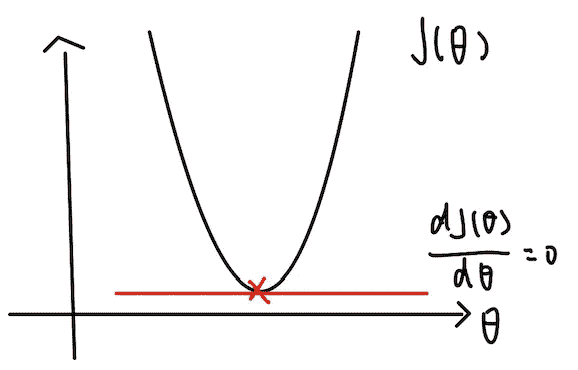 J(θ)
dJ(θ)
dθ
= 0
θ